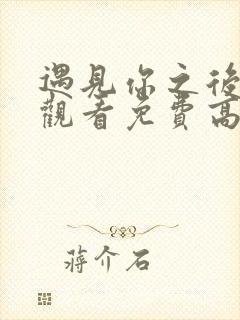 遇見你之後
觀看免費高
蔣介石